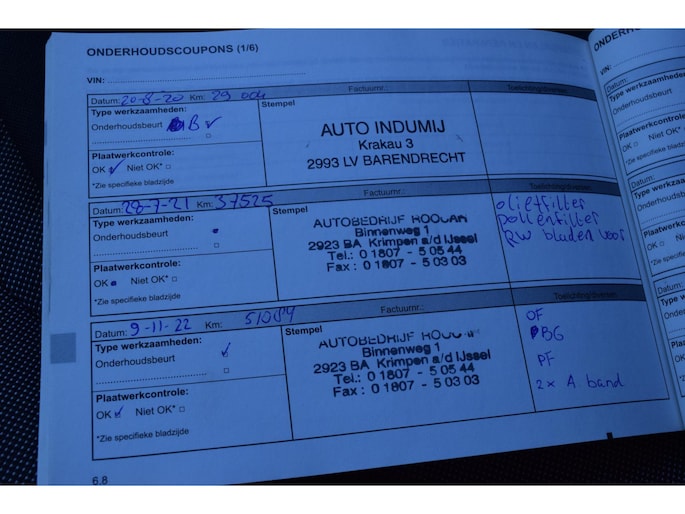 ONDERHOUDSCOUPONS (1/6)
VIN:
Datum: 20-8-20 Km: 29 004 Factuurnr.: Toelichting/diversen
Type werkzaamheden: Stempel
Onderhoudsbeurt B ✓
AUTO INDUMIJ
Krakau 3
2993 LV BARENDRECHT
Plaatwerkcontrole:
OK ✓ Niet OK* □
*Zie specifieke bladzijde
Datum: 28-7-21 Km: 37525 Factuurnr.: Toelichting/diversen
Type werkzaamheden: Stempel
Onderhoudsbeurt
AUTOBEDRIJF
Binnenweg 1
2923 BA Krimpen a/d IJssel
Tel.: 0 1807 - 5 05 44
Fax : 0 1807 - 5 03 03
olie+filter
pollenfilter
RW bladen voor
Plaatwerkcontrole:
OK Niet OK* □
*Zie specifieke bladzijde
Datum: 9-11-22 Km: Factuurnr.: Toelichting/diversen
Type werkzaamheden: Stempel
Onderhoudsbeurt ✓
AUTOBEDRIJF
Binnenweg 1
2923 BA Krimpen a/d IJssel
Tel.: 0 1807 - 5 05 44
Fax : 0 1807 - 5 03 03
OF
BG
PF
2x A. band
Plaatwerkcontrole:
OK ✓ Niet OK* □
*Zie specifieke bladzijde
6.8
VIN:
Datum:
Type
Onderhou
Plaatwerk
OK □
*Zie
Datum:
Type we
Onderho
Plaatw
OK □
*Zie
Datum
Type
Onder
Plaat
OK